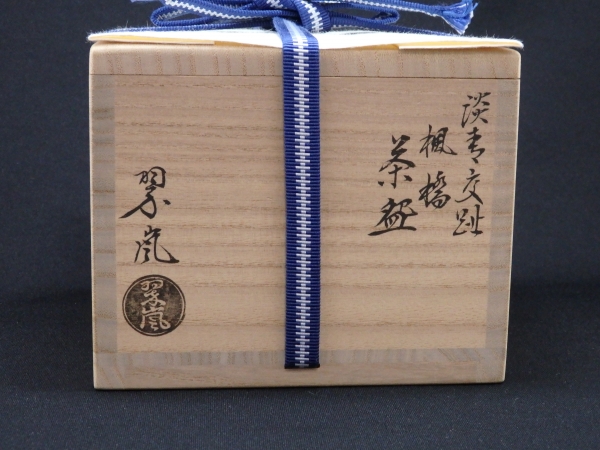 淡青交趾
楓橋
茶盌
翠嵐
翠嵐